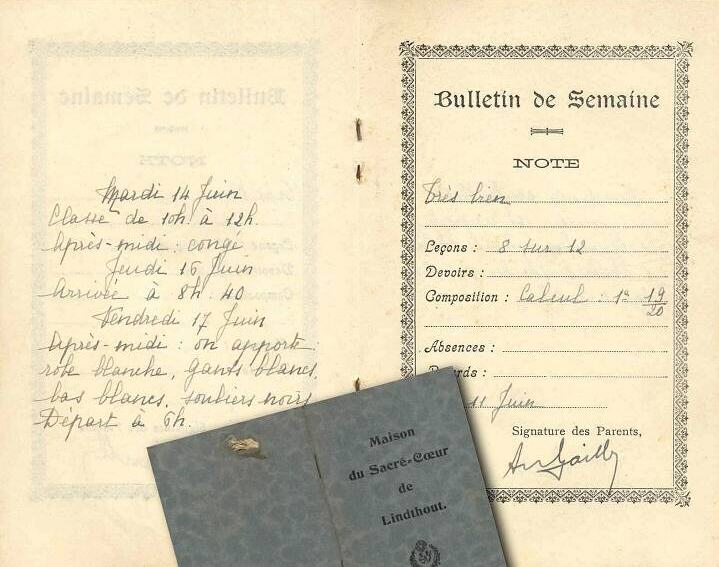 Mardi 14 Juin
Classe de 10h. à 12h.
Après-midi : congé
Jeudi 16 Juin
Arrivée à 8h. 40
Vendredi 17 Juin
Après-midi : on apporte
robe blanche, gants blancs,
bas blancs, souliers noirs
Départ à 6h.
Bulletin de Semaine
NOTE
Très bien
Leçons : 8 sur 12
Devoirs :
Composition : Calcul : 1re 19/20
Absences :
11 Juin
Signature des Parents,
Maison
du Sacré-Cœur
de
Lindthout.